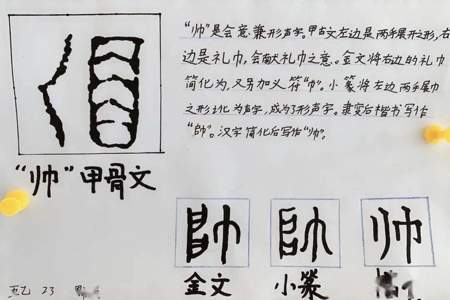 “帅”是会意兼形声字。甲骨文左边是两手展开之形,右
边是礼巾,会献礼巾之意。金文将右边的礼巾
简化为,又另加义符“巾”。小篆将左边两手展巾
之形讹化为声字,成为了形声字。隶变后楷书写作
“帥”。汉字简化后写作“帅”。
“帅”甲骨文
帥 帥 帅
金文 小篆
23